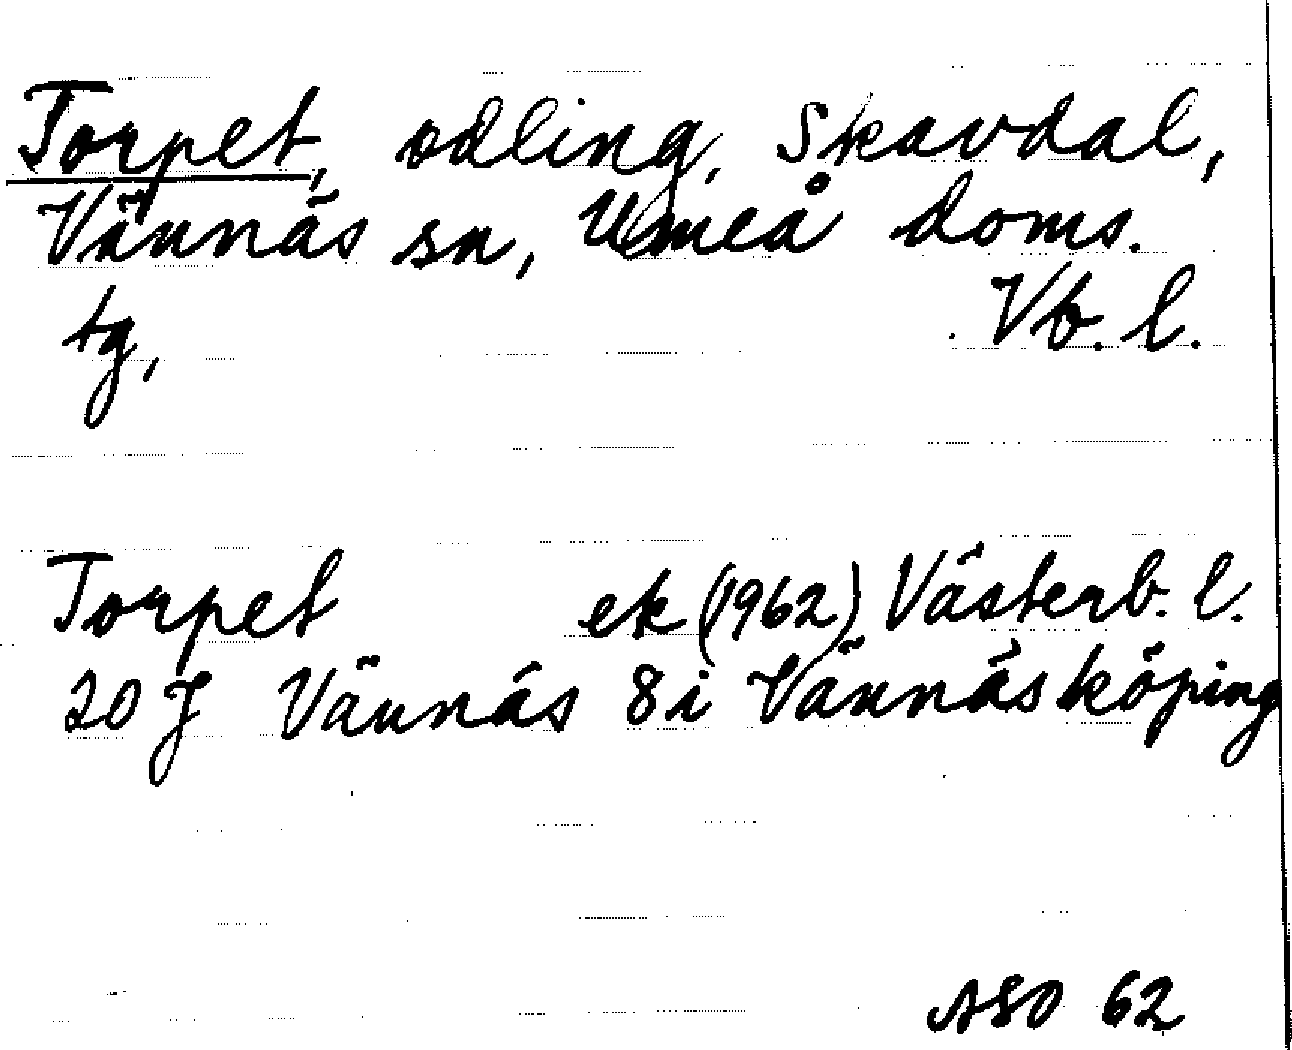 Torpet, odling, Skavdal,
Vännäs sn, Umeå doms.
tg, Vb. l.
Torpet ek (1962) Västerb. l.
20 J Vännäs 8i Vännäsköping
ASO 62